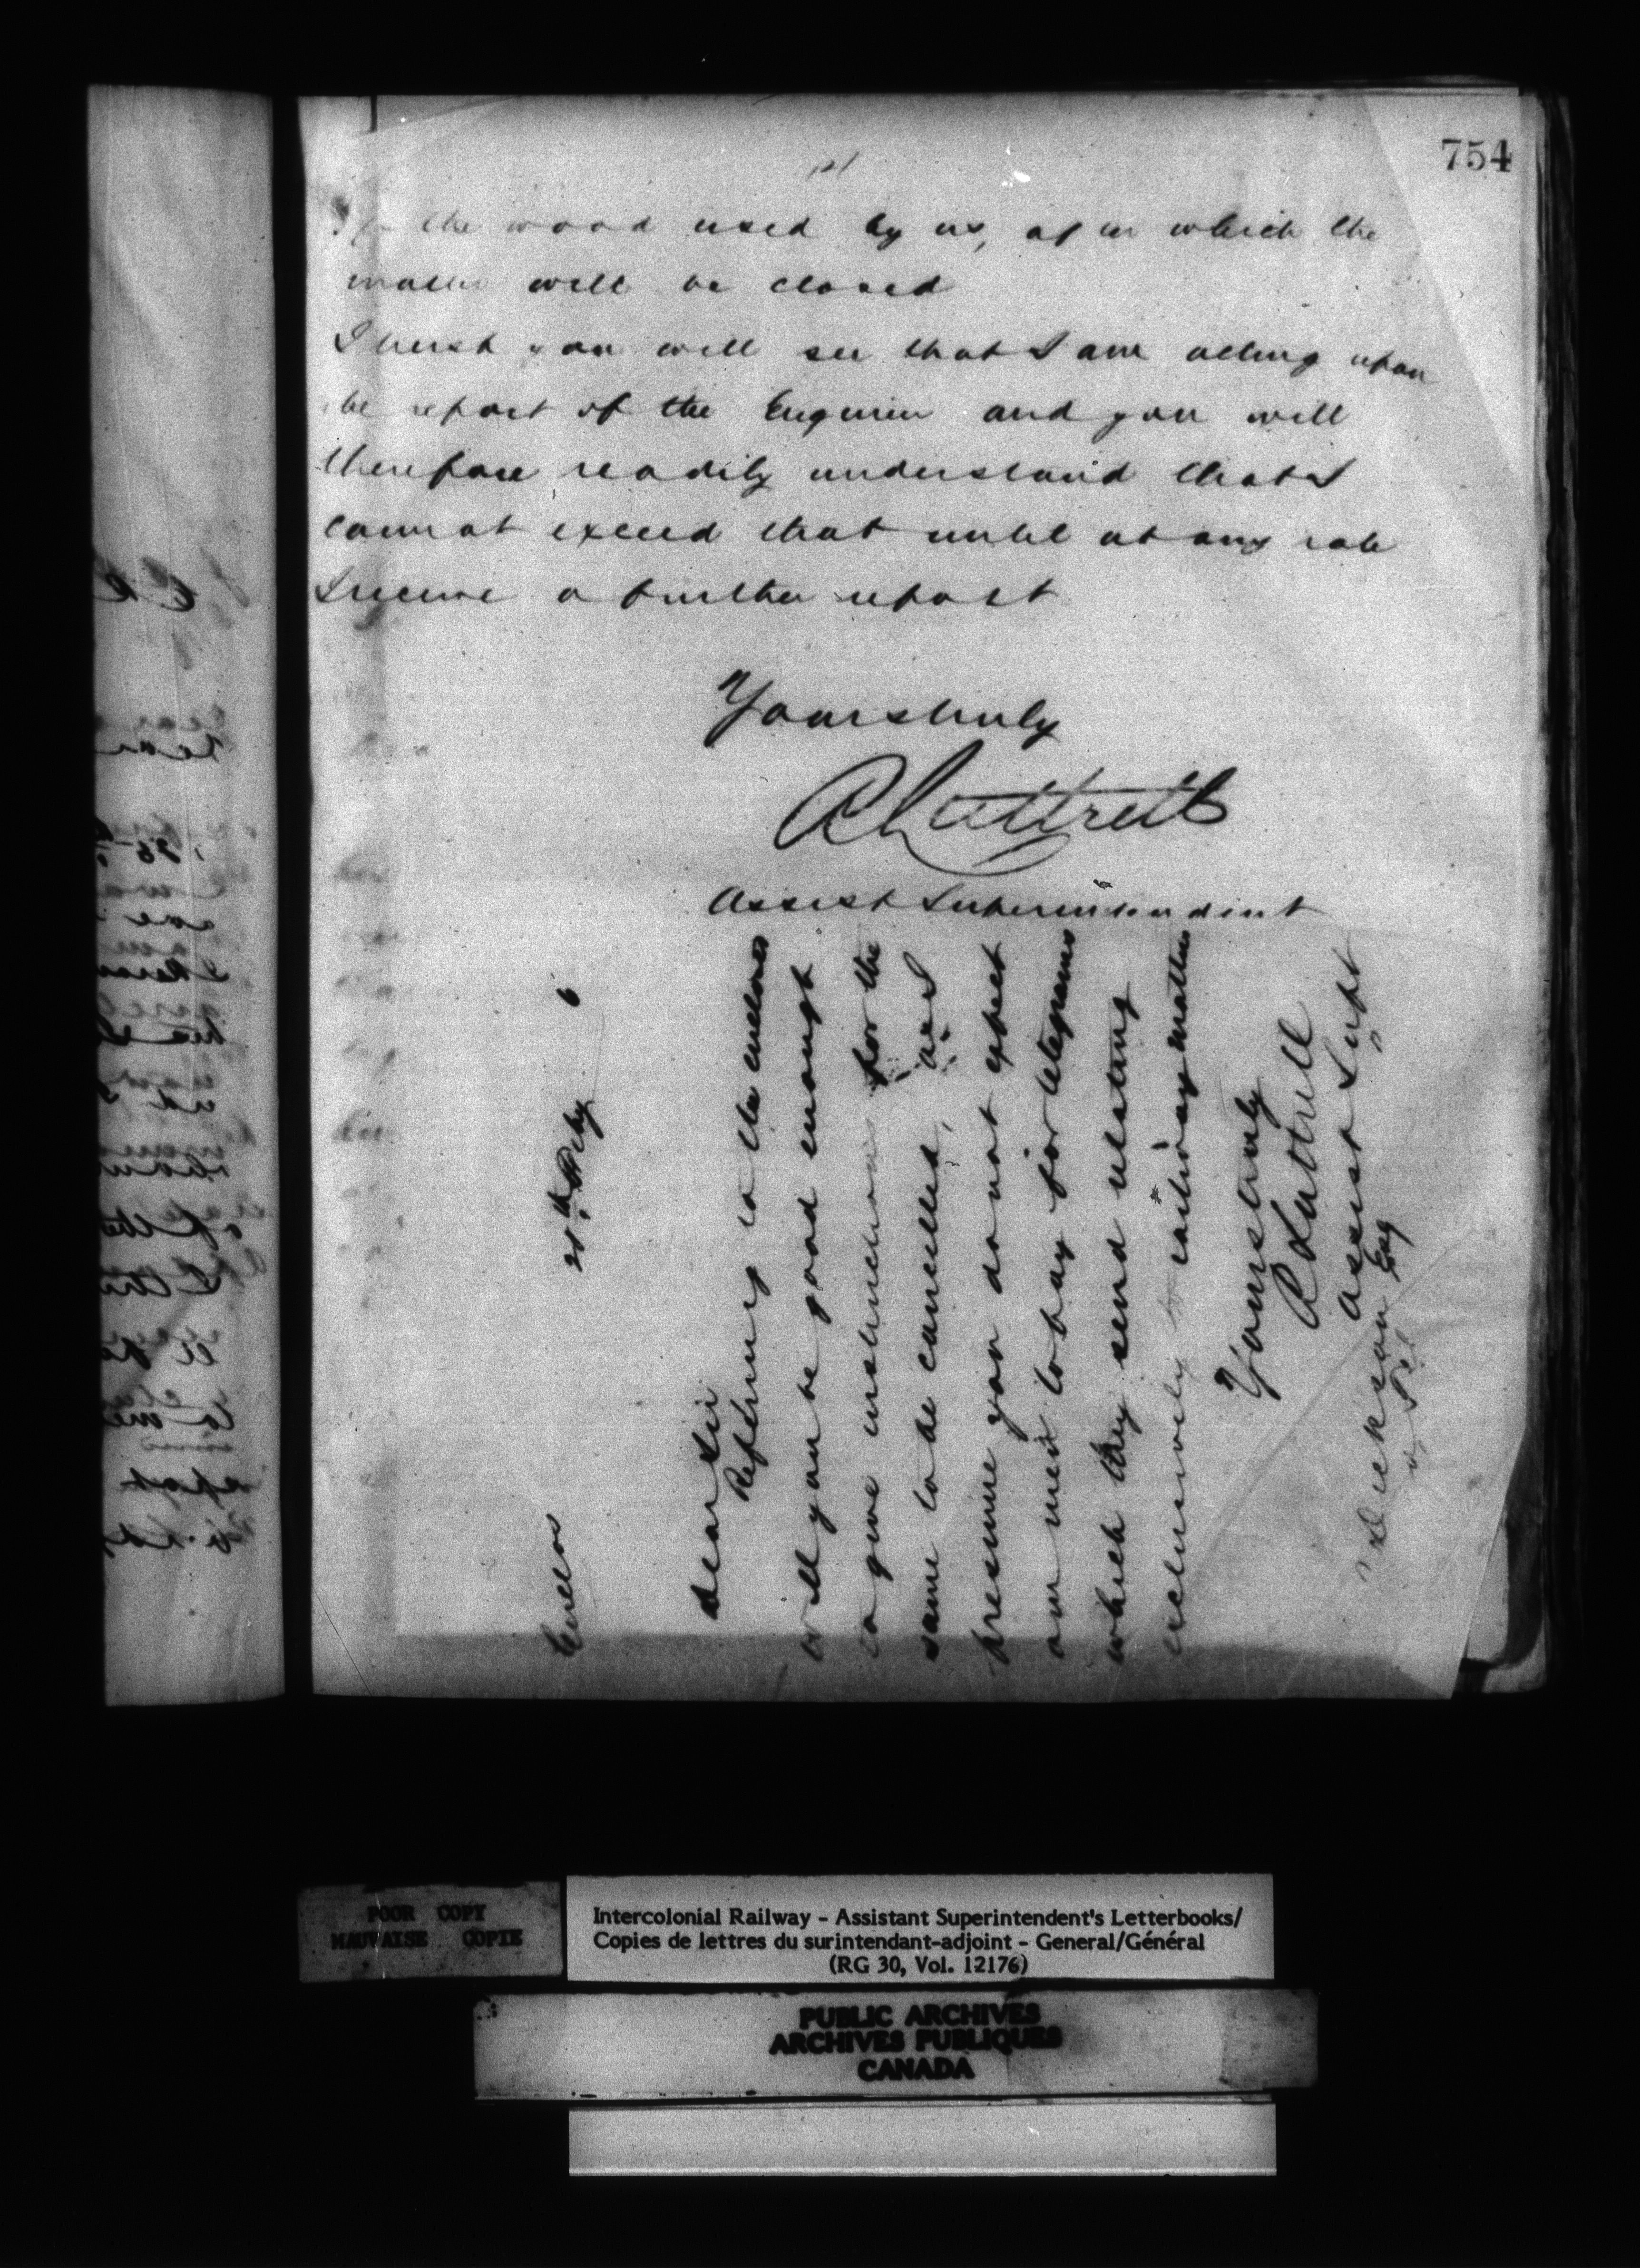 754
the wood used by us, after which the
matter will be closed
I trust you will see that I am acting upon
the report of the Engineer and you will
therefore readily understand that I
cannot exceed that until at any rate
I receive a further report
Yours truly
A Luttrell
Assist Superintendent
Enclos
21st Feby 6
Dear Sir
Referring to the enclosed
will you be good enough
to give instructions for the
same to be cancelled, as I
presume you do not expect
our men to pay for telegrams
which they send relating
exclusively to railway matters
Yours truly
A Luttrell
Assist Supt
Dickson Esq
POOR COPY
MAUVAISE COPIE
Intercolonial Railway - Assistant Superintendent's Letterbooks/
Copies de lettres du surintendant-adjoint - General/Général
(RG 30, Vol. 12176)
PUBLIC ARCHIVES
ARCHIVES PUBLIQUES
CANADA